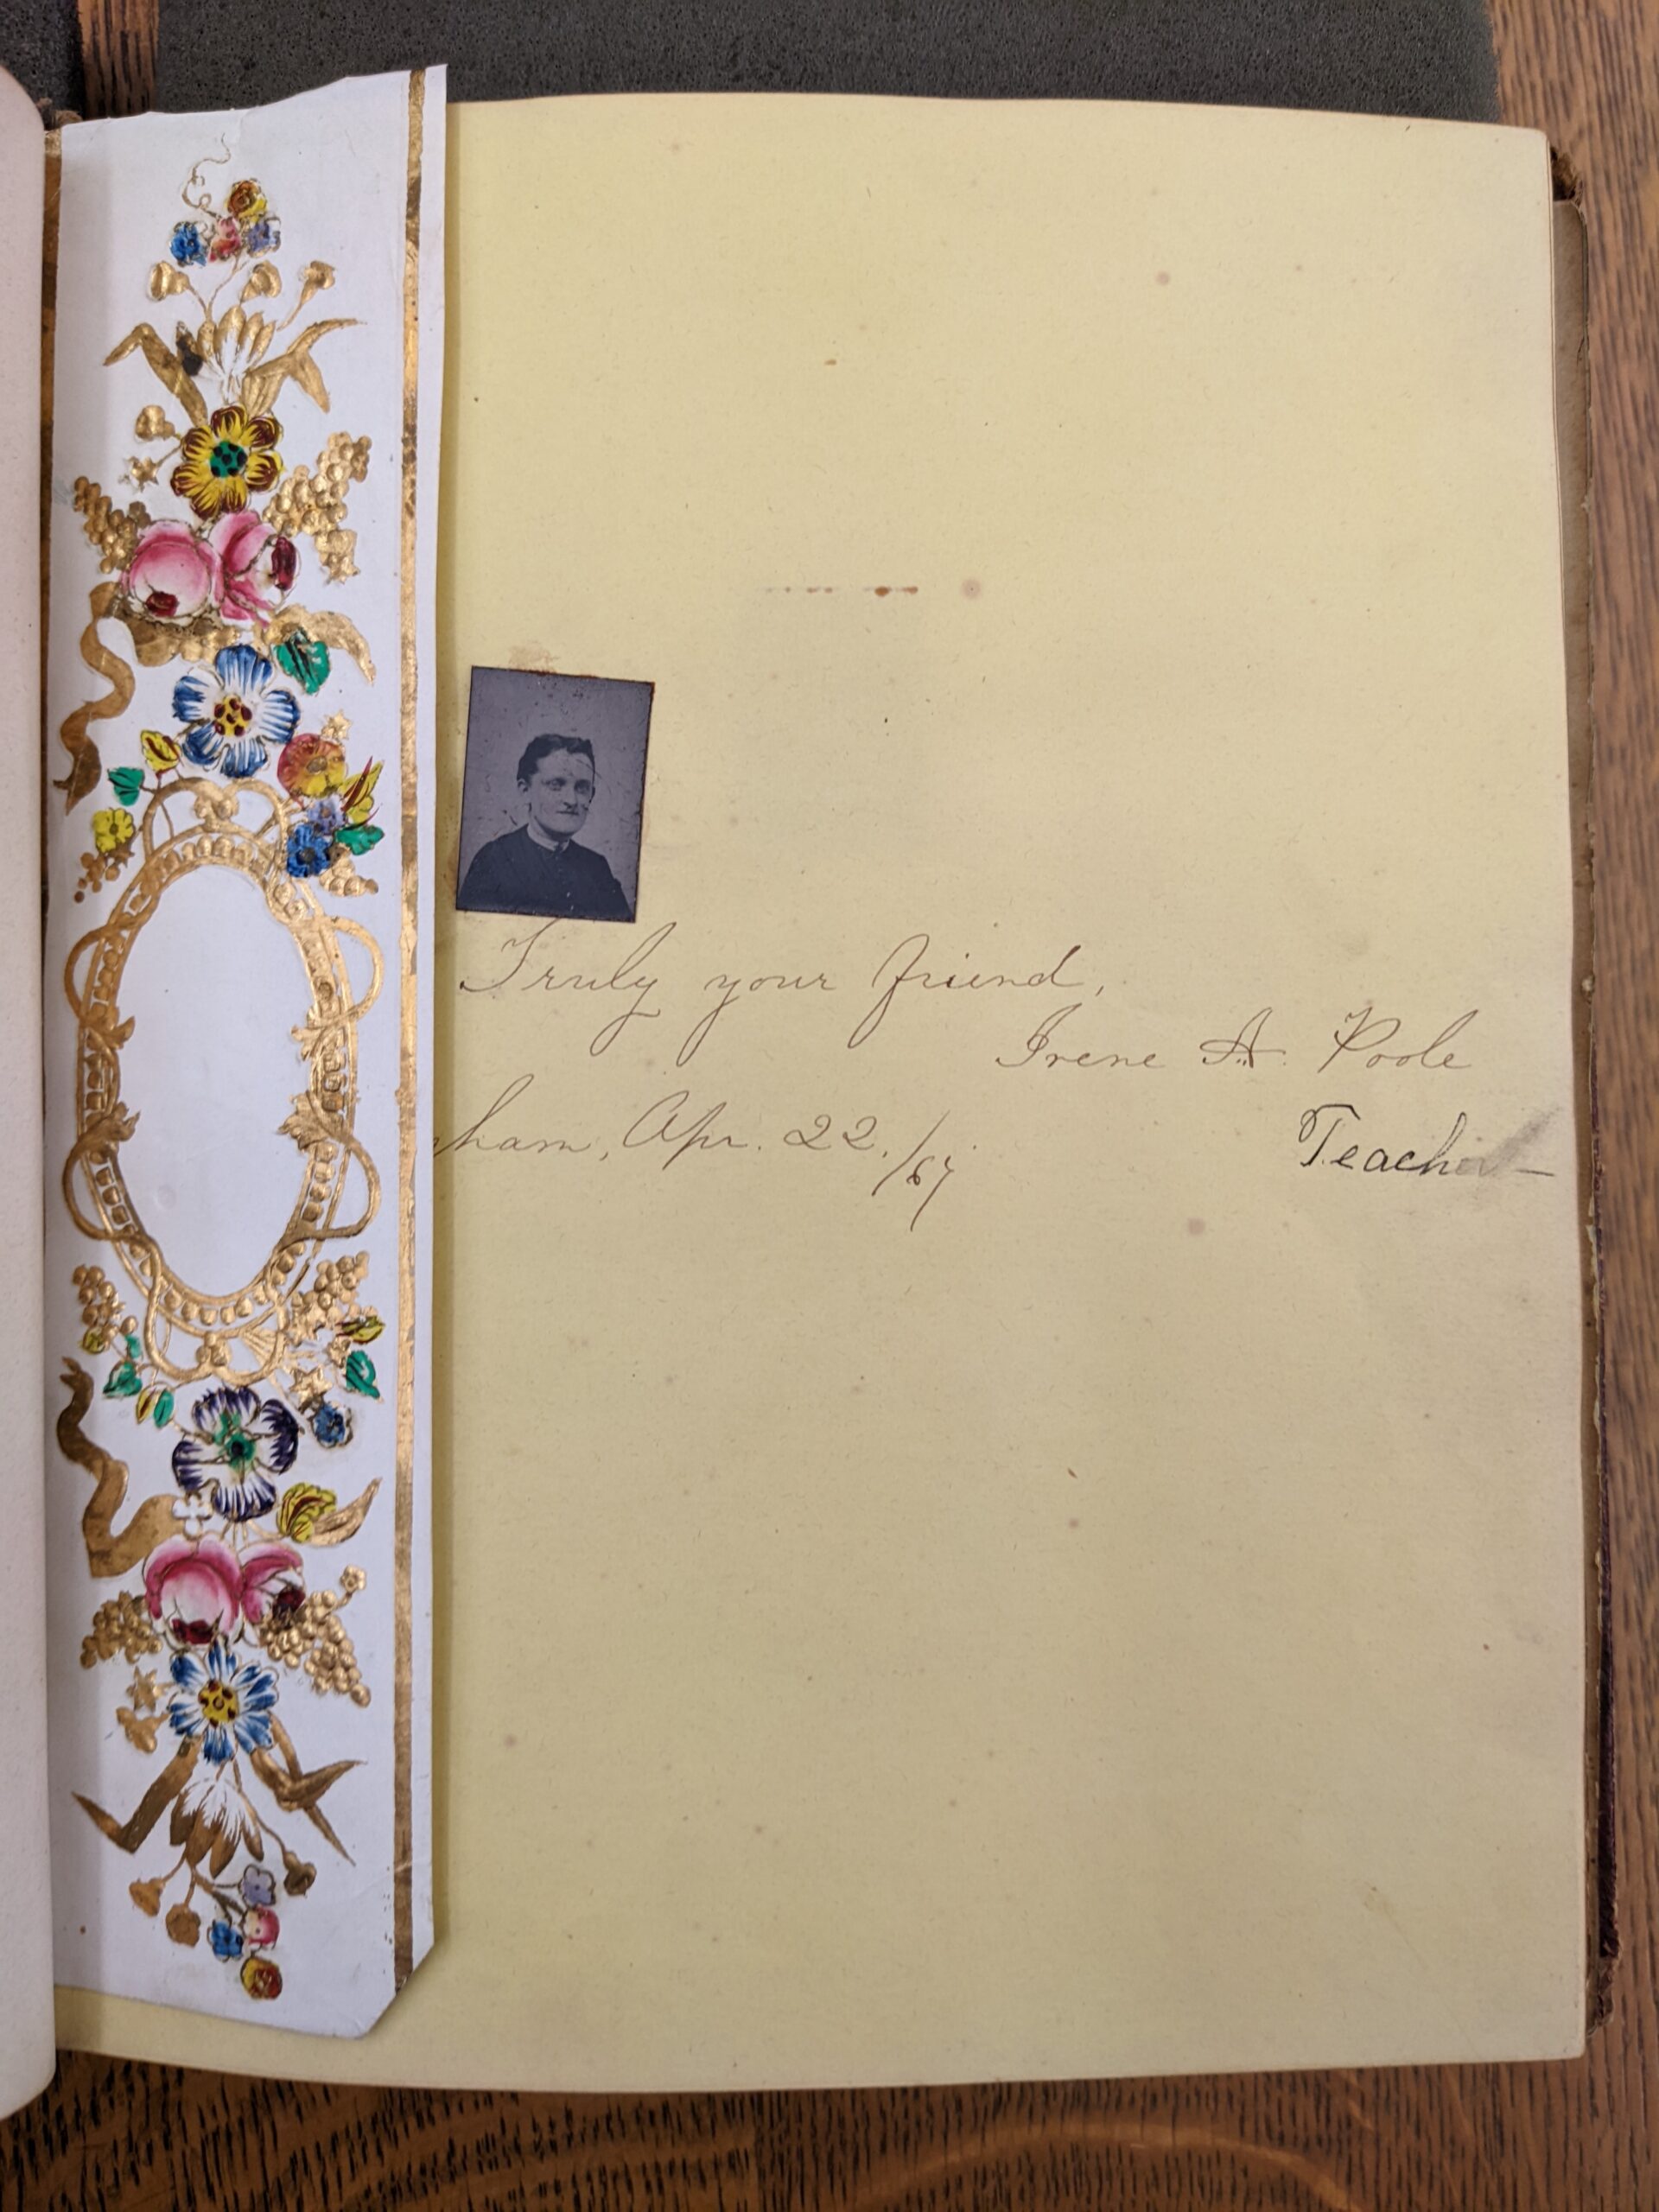 Truly your friend,
Irene A. Poole
Apr. 22./67.
Teacher